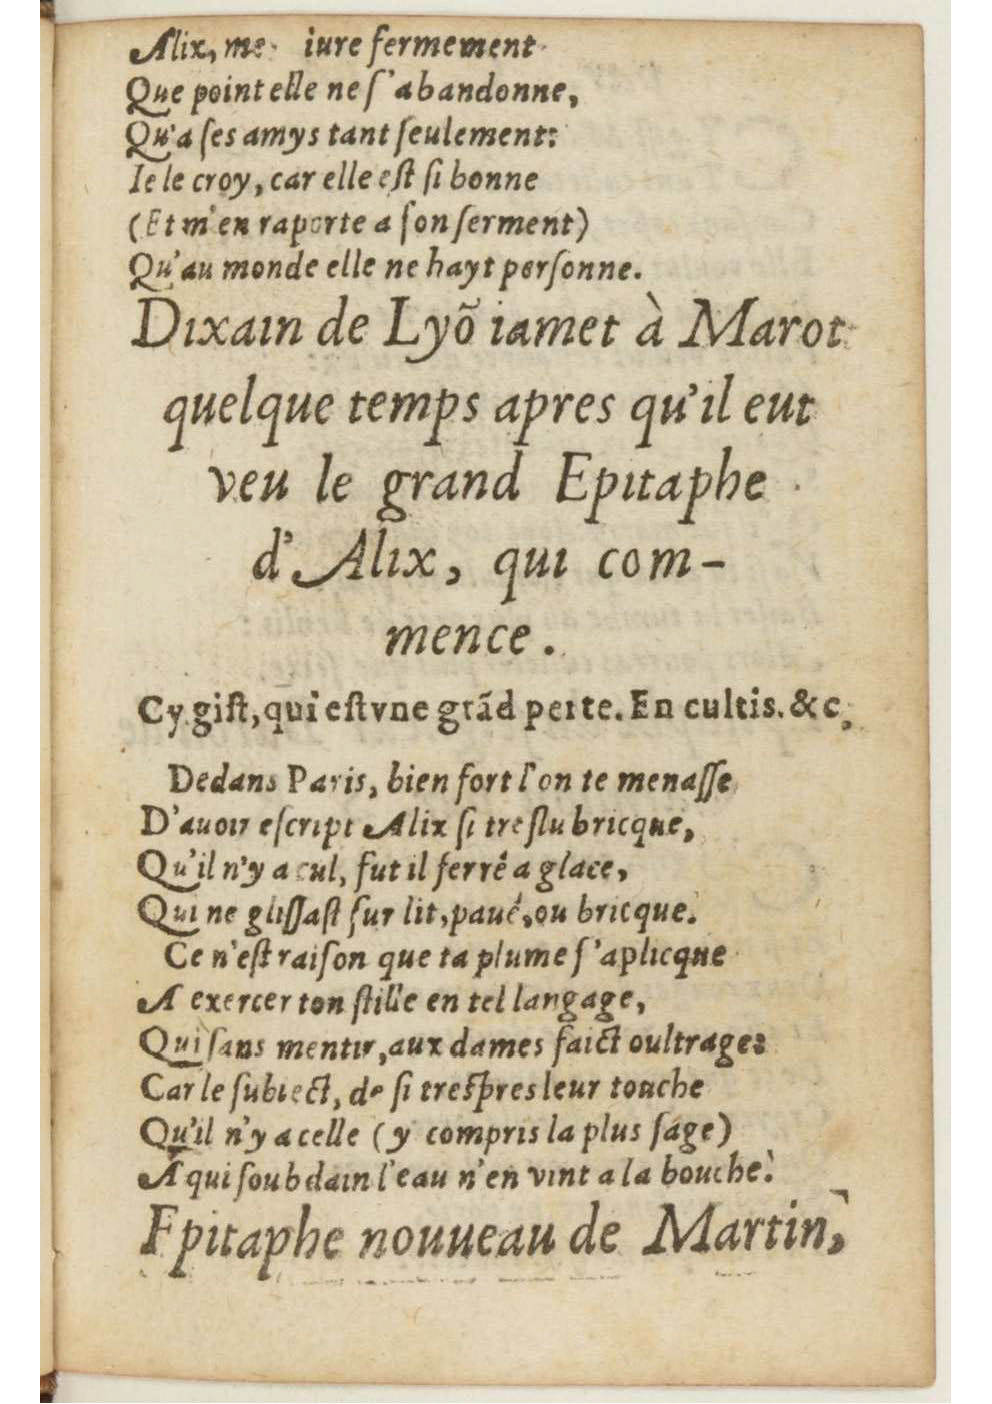 Alix, me iure fermement
Que point elle ne ſ'abandonne,
Qu'a ſes amys tant ſeulement:
Ie le croy, car elle eſt ſi bonne
(Et m'en raporte a ſon ſerment)
Qu'au monde elle ne hayt perſonne.
Dixain de Lyõ iamet à Marot
quelque temps apres qu'il eut
veu le grand Epitaphe
d'Alix, qui com-
mence.
Cy giſt, qui eſt vne grãd perte. En cultis. &c,
Dedans Paris, bien fort l'on te menaſſe
D'auoir eſcript Alix ſi treſlubricque,
Qu'il n'y a cul, fut il ferré a glace,
Qui ne gliſſaſt ſur lit, paué, ou bricque.
Ce n'eſt raiſon que ta plume ſ'aplicque
A exercer ton ſtille en tel langage,
Qui ſans mentir, aux dames faict oultrage:
Car le ſubiect, de ſi treſpres leur touche
Qu'il n'y a celle (y compris la plus ſage)
A qui ſoubdain l'eau n'en vint a la bouche.
Epitaphe nouueau de Martin,